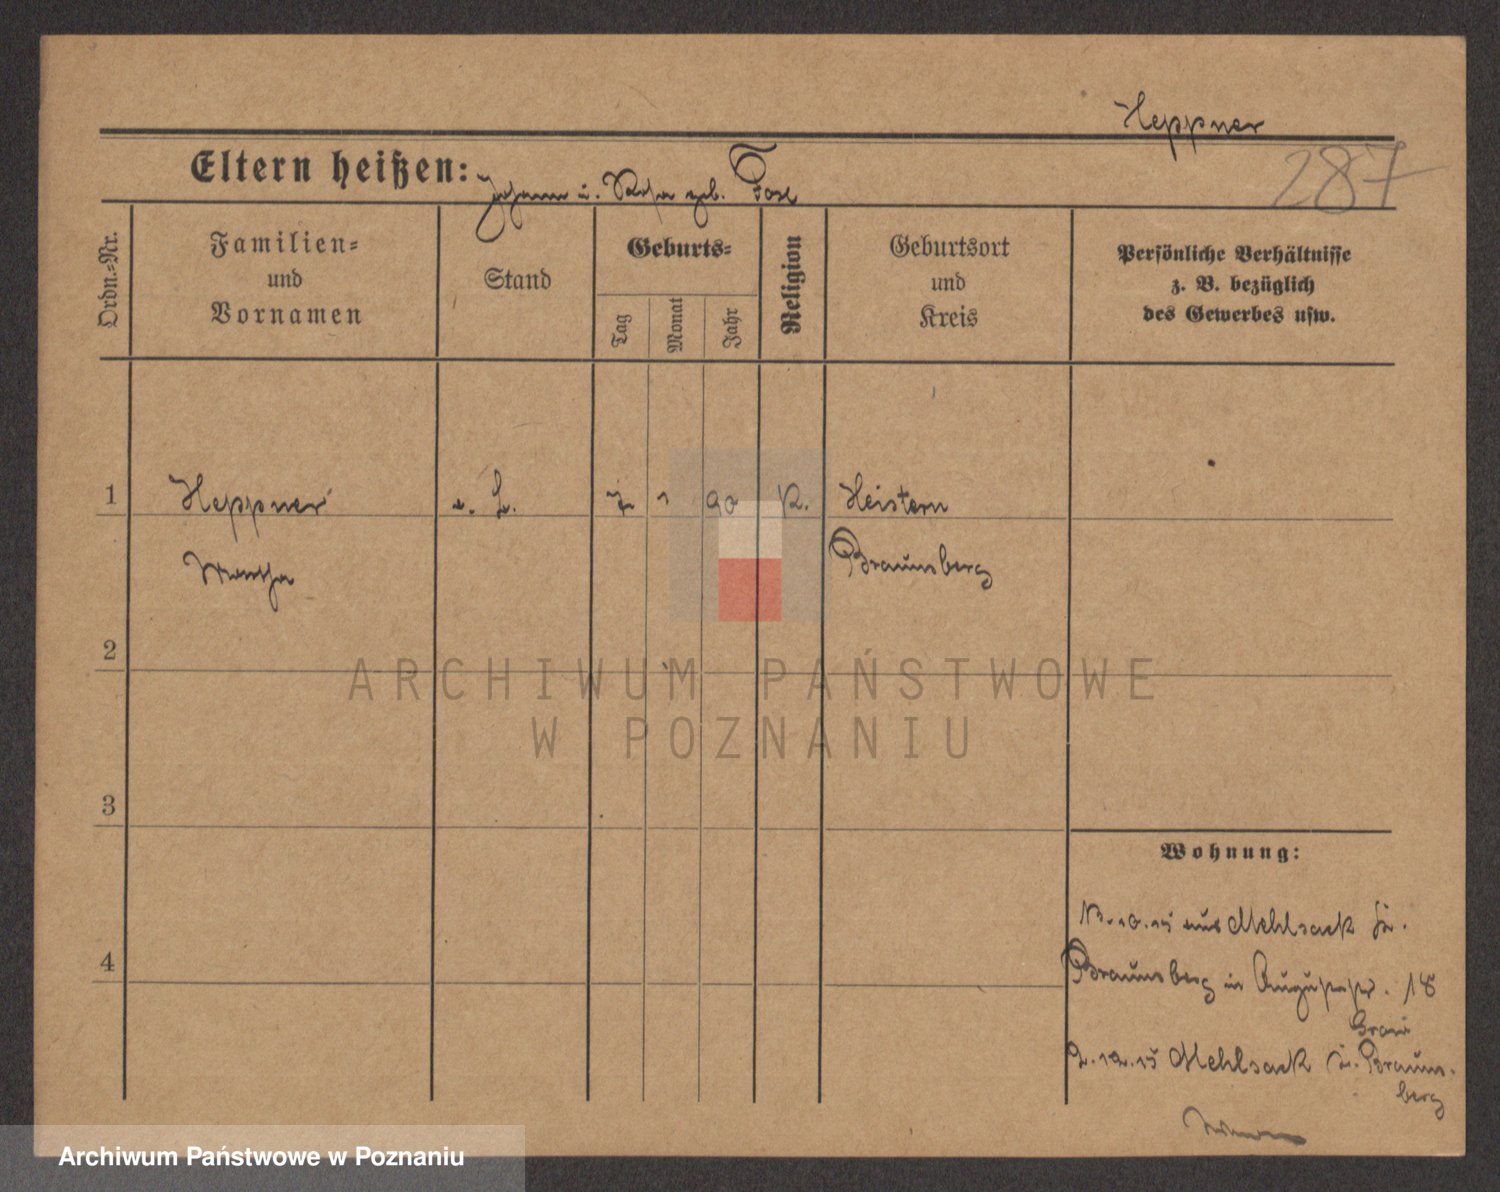 Heppner
287
Eltern heißen: Johann u. Rosa geb.
Ordn.-Nr.
Familien-
und
Vornamen
Stand
Geburts-
Tag
Monat
Jahr
Religion
Geburtsort
und
Kreis
Persönliche Verhältnisse
z. B. bezüglich
des Gewerbes usw.
1 Heppner 7 1 90 K. Heistern
Martha Braunsberg
2
3
4
Wohnung:
13.10.15 aus Mehlsack Kr.
Braunsberg in Augustastr. 18
Grau
2.12.15 Mehlsack Kr. Brauns-
berg
ARCHIWUM PAŃSTWOWE
W POZNANIU
Archiwum Państwowe w Poznaniu